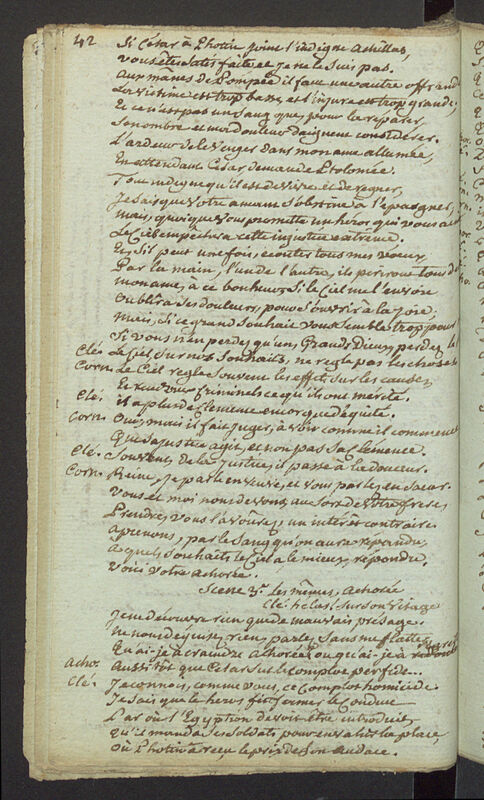 42 Si César à Photin joint l'indigne Achillas,
Vous êtes satisfaite et je ne le suis pas.
Aux mânes de Pompée il faut une autre offrande,
La victime est trop basse, et l'injure est trop grande,
Et ce n'est pas un sang que, pour la réparer
Son ombre et ma douleur daignent considérer.
L'ardeur de le venger dans mon ame allumée,
En attendant César demande Ptolomée.
Tout indigne qu'il est de vivre et de regner,
Je sais que votre amant s'obstine à l'epargner,
Mais, quoique vous promette un héros qui vous
Le Ciel empêchera cette injustice extreme.
Et, s'il peut une fois, ecouter tous mes voeux,
Par la main, l'un de l'autre, ils periront tous
mon ame, à ce bonheur, si le Ciel me l'envoie
Oublira ses douleurs, pour s'ouvrir à la joie;
Mais, si ce grand souhait vous semble trop pour
Si vous n'en perdez qu'un, Grands Dieux, perdez le
Clé. Le Ciel sur nos souhaits, ne regle pas les choses
Corn. Le Ciel regle souvent les effets sur les causes,
Et rend aux criminels ce qu'ils ont merité.
Clé. Il a plus de clemence encor que d'équité.
Corn. Oui, mais il fait juger, à voir comme il commence
Que sa justice agit, et non pas sa clemence.
Clé. Souvent, de la justice, il passe à la douceur.
Corn. Reine, je parle en veuve, et vous parlez en soeur.
Vous et moi nous devons, au sort de votre frere,
Prendre, vous l'avoûrez, un intérêt contraire.
Aprenons, par le sang qu'on aura répandu,
A quels souhaits le Ciel a le mieux répondu.
Voici votre Achorée.
Scene 3e. Les mêmes, Achorée
Clé. hélas! sur son visage
Je ne découvre rien que de mauvais présage.
Ne nous déguisez rien, parlez sans me flatter,
Qu'ai-je à craindre Achorée, ou qu'ai-je à
Acho. Aussitôt que César sut le complot perfide...
Clé. Je connois, comme vous, ce complot homicide
Je sais que le heros fit fermer le conduit
Par où l'Egyptien devoit être introduit,
Qu'il manda ses soldats pour envahir la place,
Où Photin a reçu le prix de son audace.